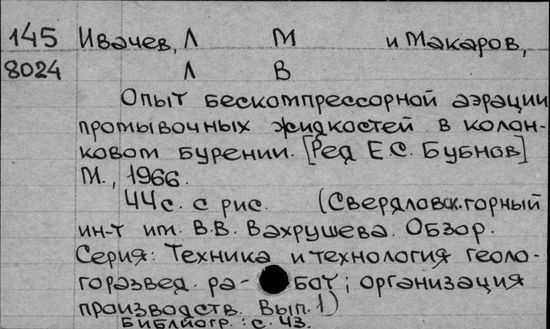 145 Ивачев, Л М и Макаров,
8024 Л В
Опыт бескомпрессорной аэрации
промывочных жидкостей в колон-
ковом бурении. [Ред Е.С. Бубнов]
М., 1966.
44с. с рис. (Свердловск.горный
ин-т им. В.В. Вахрушева. Обзор.
Серия: Техника и технология геоло-
горазвед. ра- бот; организация
производств. Вып. 1)
Библиогр.: с. 43.